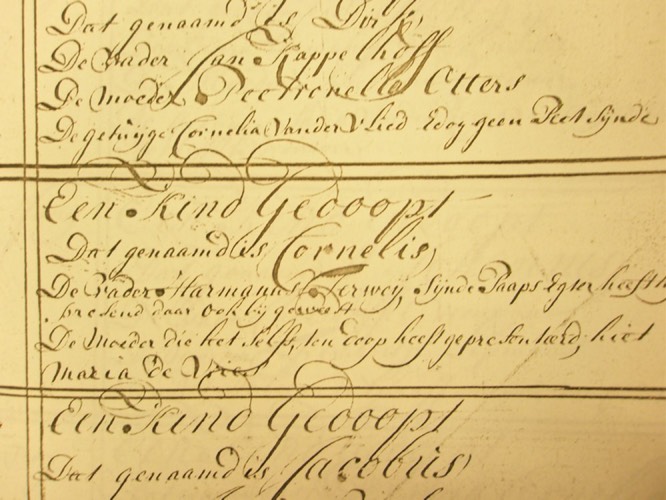 Dat genaamd is Dirk
De Vader Jan Kappelhoff
De Moeder Peetronelle Ouers
De getuyge Cornelia Vander Vlied Edog geen Peet Sÿnde
Een Kind Gedoopt
Dat genaamd is Cornelis
De Vader Harmanus Terweÿ, Sÿnde Paaps Egter heeft
daar ook bÿ geweest
De Moeder die het Selfs, ten doop heeft gepresenteerd, hiet
Maria de Vries
Een Kind Gedoopt
Dat genaamd is Jacobus